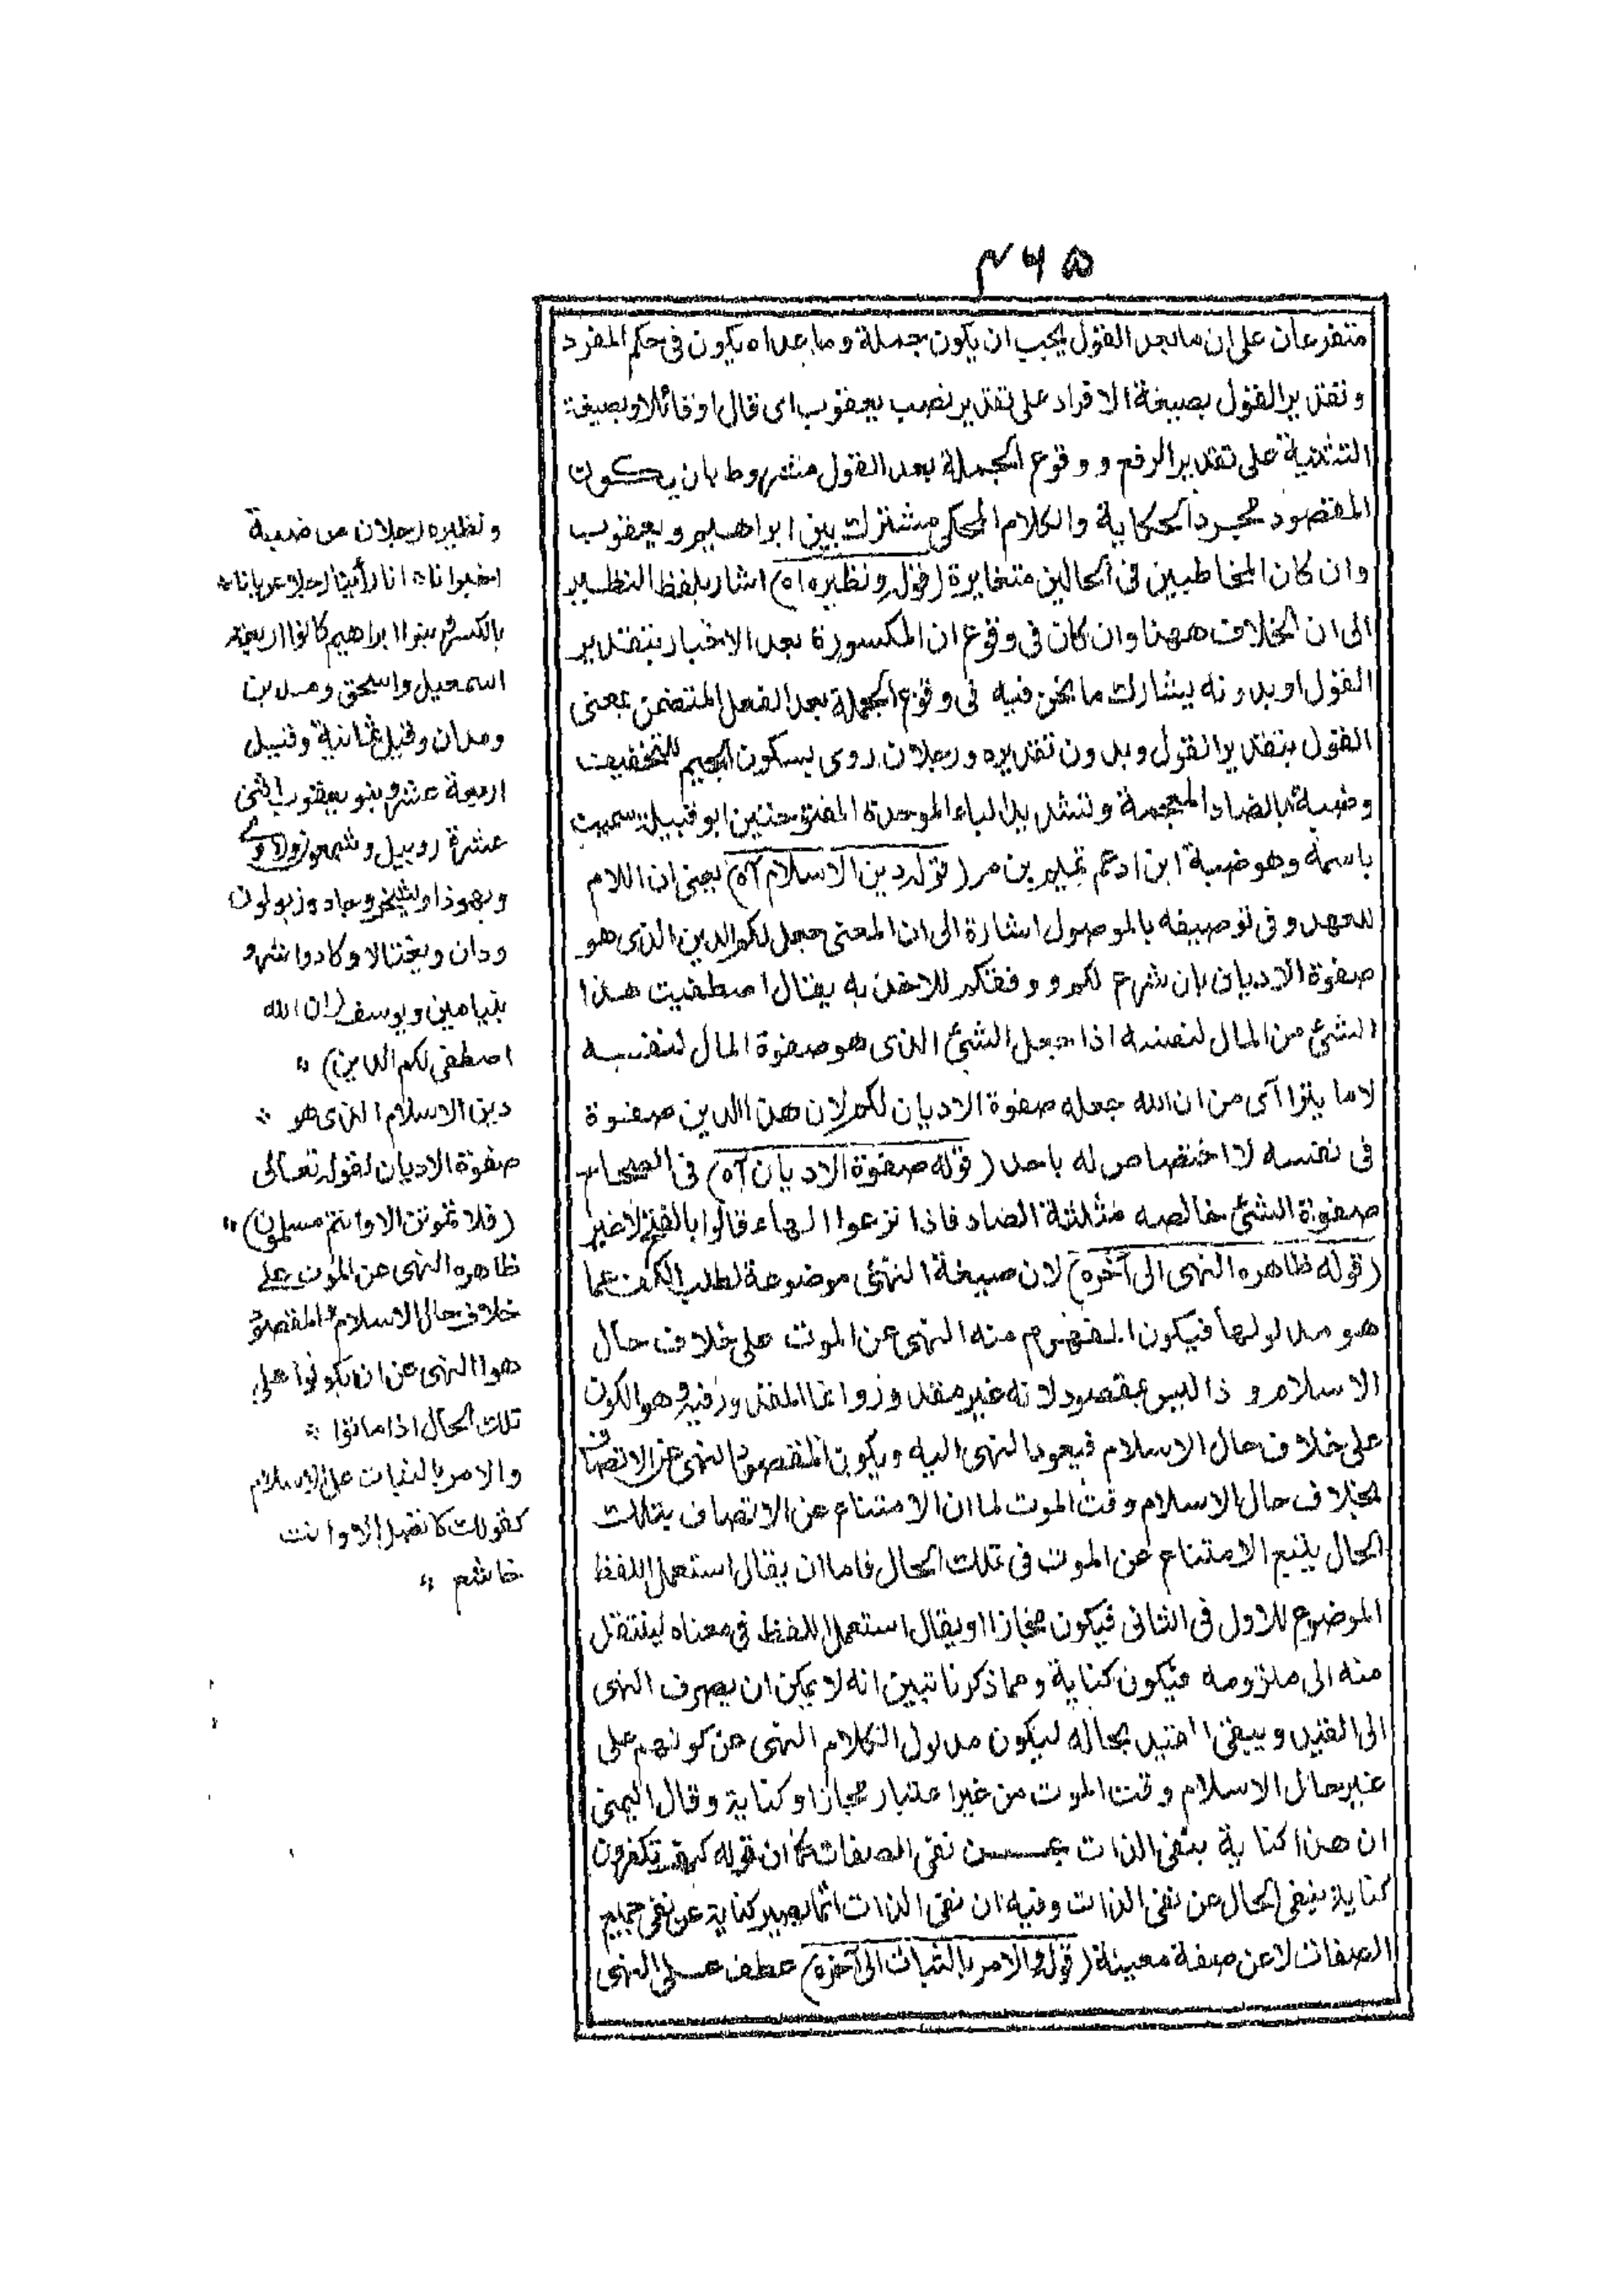 ٤٦٥
متفرعان على ان ما بعد القول يجب ان يكون جملة وما عداه يكون فى حكم المفرد
وتقدير القول بصيغة الافراد على تقدير نصب يعقوب اى قال او قائلا وبصيغة
التثنية على تقدير الرفع ووقوع الجملة بعد القول مشروط بان يكون
المقصود مجرد الحكاية والكلام المحكى مشترك بين ابراهيم ويعقوب
وان كان المخاطبين فى الحالين متغايرة (قوله ونظيره اه) اشار بلفظ النظير
الى ان الخلاف ههنا وان كان فى وقوع ان المكسورة بعد الاخبار بتقدير
القول او بدونه يشارك ما نحن فيه فى وقوع الجملة بعد الفعل المتضمن بمعنى
القول بتقدير القول وبدون تقديره ورجلان روى بسكون الجيم للتخفيف
وضبة بالضاد المعجمة وتشديد الباء الموحدة المفتوحتين ابو قبيلة سميت
باسمه وهو ضبة ابن اد عم تميم بن مر (قوله دين الاسلام آه) يعنى ان اللام
للعهد وفى توصيفه بالموصول اشارة الى ان المعنى جعل لكم الدين الذى هو
صفوة الاديان بان شرع لكم ووفقكم للاخذ به يقال اصطفيت هذا
الشئ من المال لنفسه اذا جعل الشئ الذى هو صفوة المال لنفسه
لا ما يتراآى من ان الله جعله صفوة الاديان لكم لان هذا الدين صفوة
فى نفسه لا اختصاص له باحد (قوله صفوة الاديان آه) فى الصحاح
صفوة الشئ خالصه مثلثة الصاد فاذا نزعوا الهاء قالوا بالفتح لا غير
(قوله ظاهره النهى الى آخره) لان صيغة النهى موضوعة لطلب الكف عما
هو مدلولها فيكون المفهوم منه النهى عن الموت على خلاف حال
الاسلام وذا ليس بمقصود لانه غير مقدور وانما المقدور فيه هو الكون
على خلاف حال الاسلام فيعود النهى اليه ويكون المقصود النهى عن الاتصاف
بخلاف حال الاسلام وقت الموت لما ان الامتناع عن الاتصاف بتلك
الحال يتبع الامتناع عن الموت فى تلك الحال فاما ان يقال استعمل اللفظ
الموضوع للاول فى الثانى فيكون مجازا او يقال استعمل اللفظ فى معناه لينتقل
منه الى ملزومه فيكون كناية ومما ذكرنا تبين انه لا يمكن ان يصرف النهى
الى القيد ويبقى المقيد بحاله ليكون مدلول الكلام النهى عن كونهم على
غير حال الاسلام وقت الموت من غير اعتبار مجاز او كناية وقال اليمنى
ان هذا كناية بنفى الذات عن نفى الصفات كما ان قوله كيف تكفرون
كناية بنفى الحال عن نفى الذات وفيه ان نفى الذات انما يصير كناية عن نفى جميع
الصفات لا عن صفة معينة (قوله والامر بالثبات الى آخره) عطف على النهى
ونظيره رجلان من ضبة
اخبرانا * انا رأينا رجلا عريانا *
بالكسر بنوا ابراهيم كانوا اربعة
اسمعيل واسحق ومدين
ومدان وقيل ثمانية وقيل
اربعة عشر وبنو يعقوب اثنى
عشرة روبيل وشمعون ولاوى
ويهوذا ويشيخر وجاد وزبولون
ودان ويفتالا وكادوا شر و
بنيامين ويوسف (ان الله
اصطفى لكم الدين) *
دين الاسلام الذى هو *
صفوة الاديان لقوله تعالى
(فلا تموتن الا وانتم مسلمون) *
ظاهره النهى عن الموت على
خلاف حال الاسلام والمقصود
هوا النهى عن ان يكونوا على
تلك الحال اذا ماتوا *
والامر بالثبات على الاسلام
كقولك لا تصل الا وانت
خاشع *